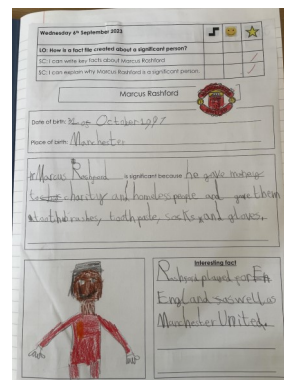 Wednesday 6th September 2023
LO: How is a fact file created about a significant person?
SC: I can write key facts about Marcus Rashford
SC: I can explain why Marcus Rashford is a significant person.
Marcus Rashford
Date of birth: October 1997
Place of birth: Manchester
Marcus Rashford is significant because he gave
charity and homeless people and gave them
toothbrushes, tooth paste, socks and gloves.
Interesting fact
Rashford played for
England as well as
Manchester United.